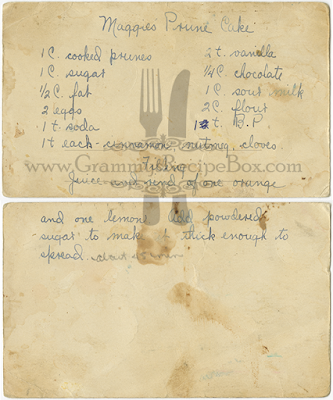 Maggies Prune Cake
1 C. cooked prunes 2 t. vanilla
1 C. sugar 1/4 C. chocolate
1/2 C. fat 1 C. sour milk
2 eggs 2 C. flour
1 t. soda 1 t. B.P
1 t each cinnamon nutmeg, cloves.
www.GrammysRecipeBox.com
Filling
Juice and rind of one orange
and one lemon add powdered
sugar to make thick enough to
spread.